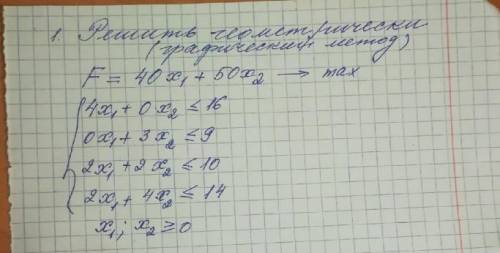 1. Решить геометрически
(графический метод)
F = 40x₁ + 50x₂ → max
4x₁ + 0x₂ ≤ 16
0x₁ + 3x₂ ≤ 9
2x₁ + 2x₂ ≤ 10
2x₁ + 4x₂ ≤ 14
x₁; x₂ ≥ 0